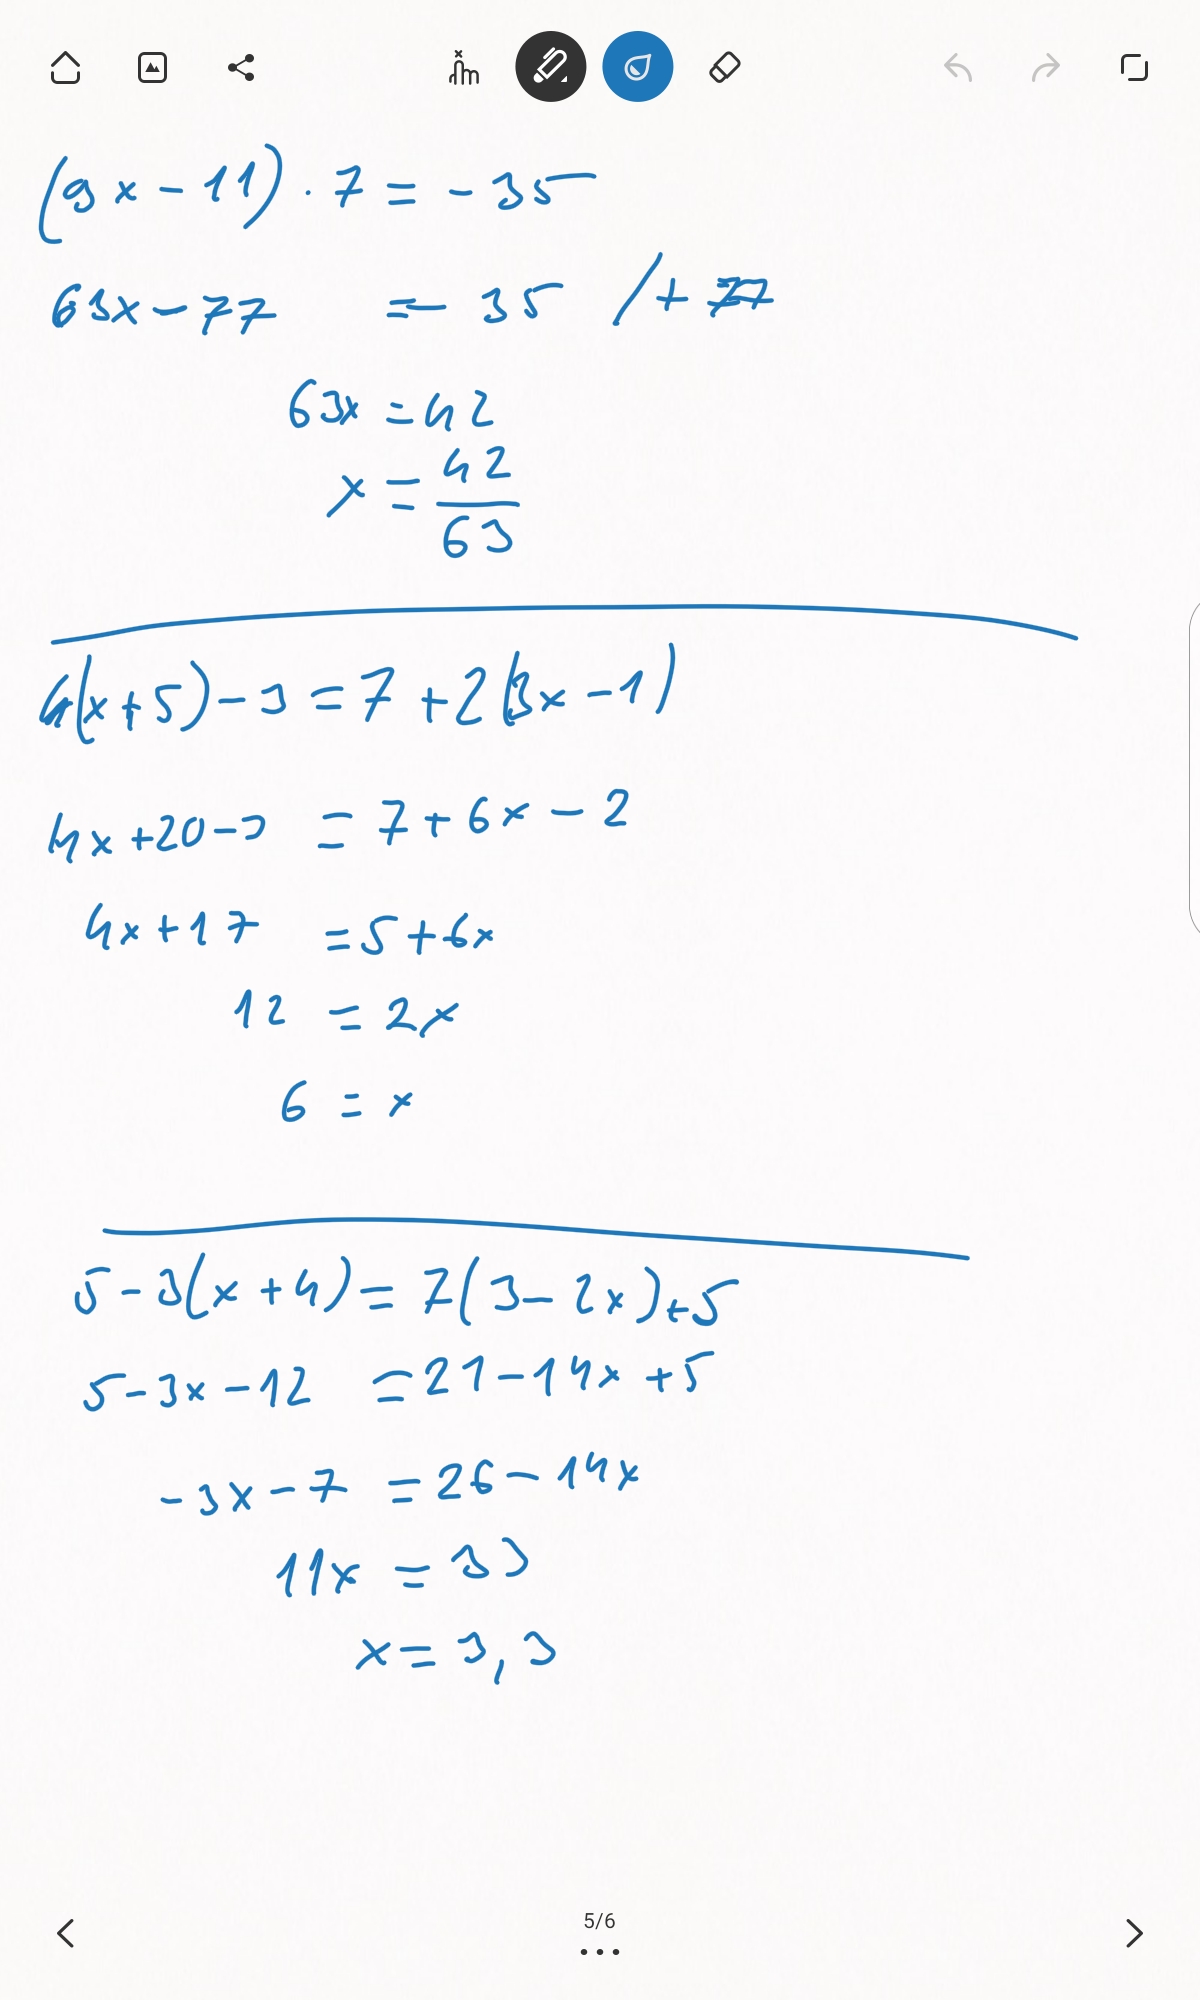 (9x - 11) · 7 = - 35
63x - 77 = - 35 / + 77
63x = 42
x = 42/63
4(x + 5) - 3 = 7 + 2(3x - 1)
4x + 20 - 3 = 7 + 6x - 2
4x + 17 = 5 + 6x
12 = 2x
6 = x
5 - 3(x + 4) = 7(3 - 2x) + 5
5 - 3x - 12 = 21 - 14x + 5
- 3x - 7 = 26 - 14x
11x = 33
x = 3,3
5/6